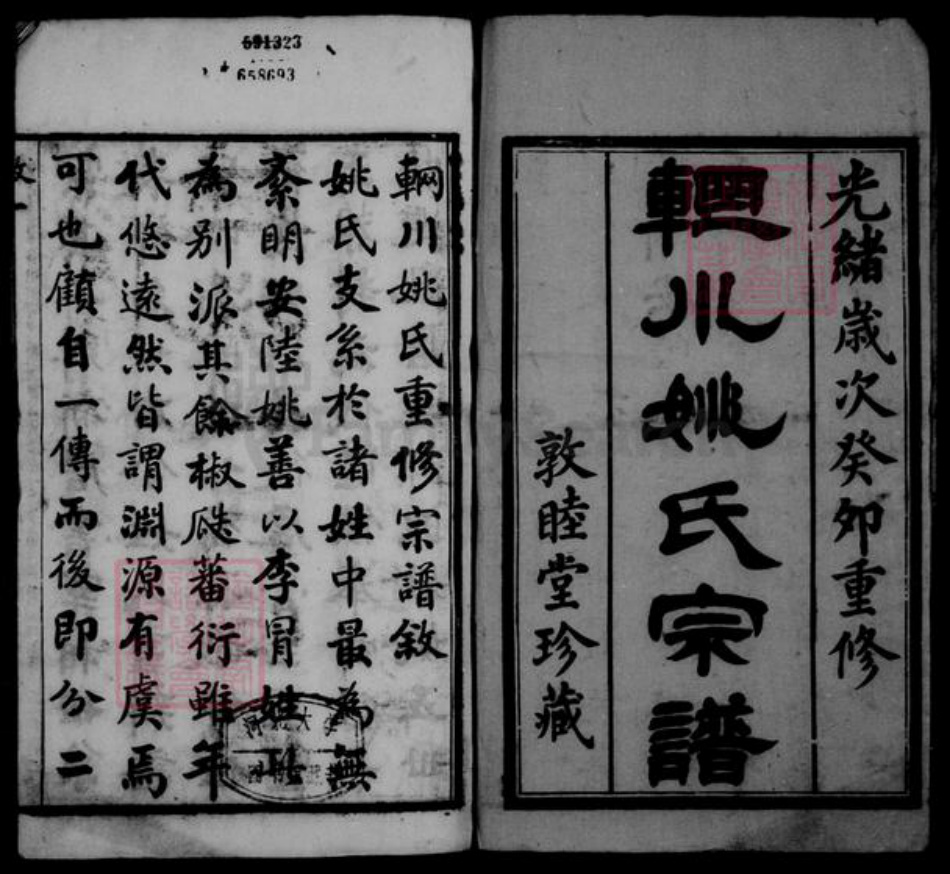 光緒歲次癸卯重修
輞川姚氏宗譜
敦睦堂珍藏
691323
658693
輞川姚氏重修宗譜敘
姚氏支系於諸姓中最為無
紊明安陸姚善以李冒姓
為別派其餘椒瓞蕃衍雖年
代悠遠然皆謂淵源有虞焉
可也顧自一傳而後即分二